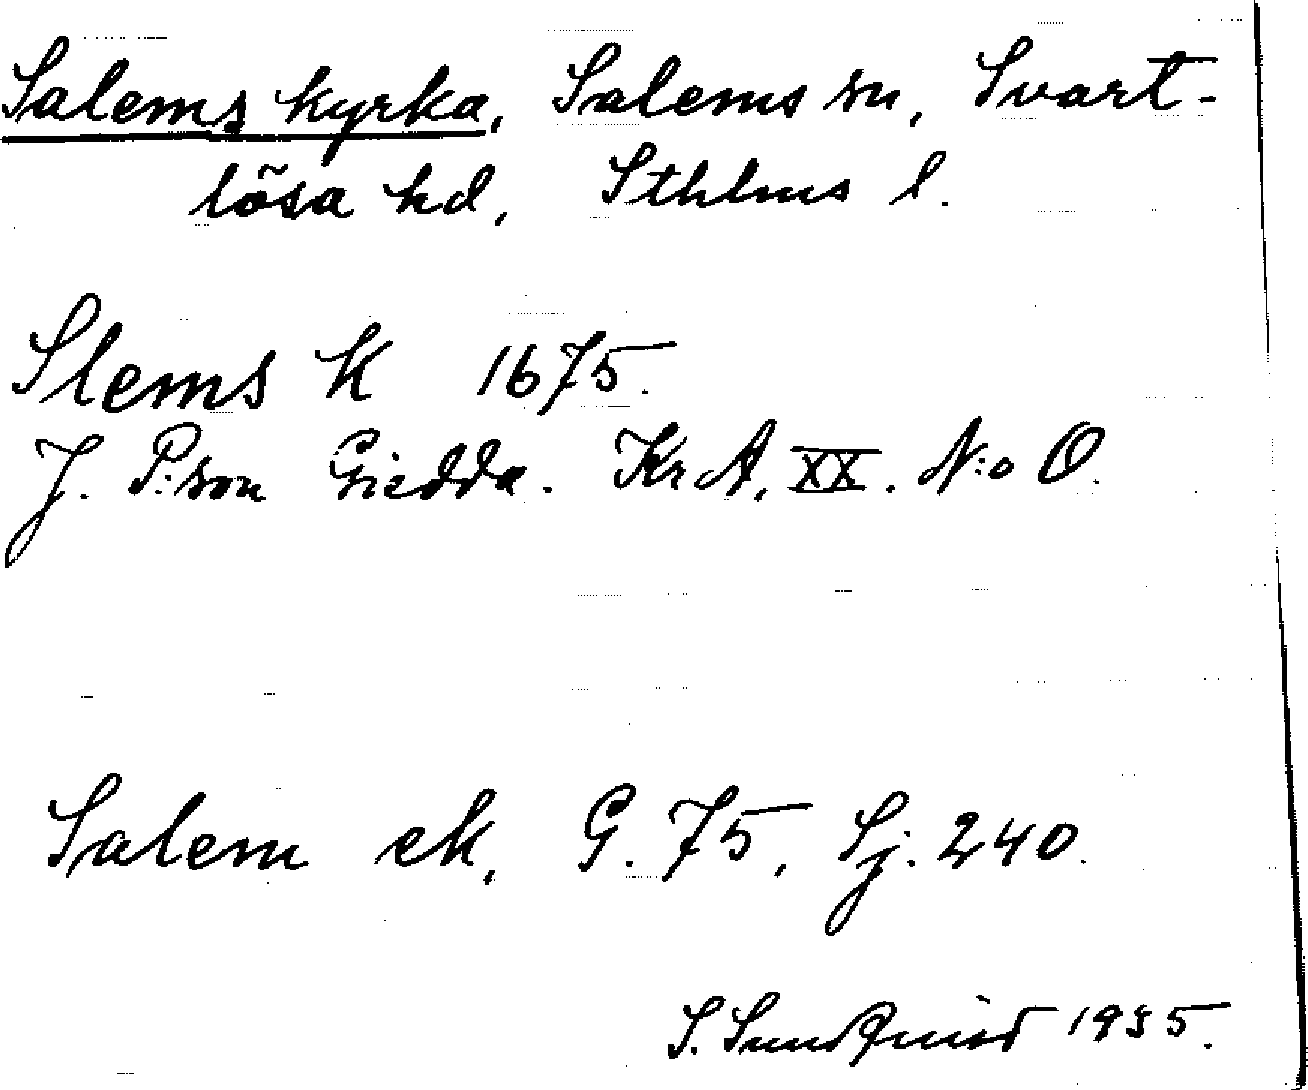 Salems kyrka, Salems sn, Svart-
lösa hd, Sthlms l.
Slems K 1675.
J. P:son Giedda. KrA, XX. N:o O.
Salem ek, G. 75, Sj. 240.
S. Sundquist 1935.